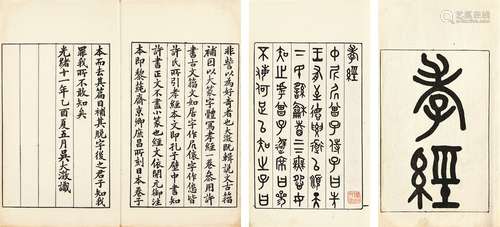 孝經
孝經
中尼凥曾子侍子曰先
王又至德要道以順天
下民用和睦上下亡怨女
知之乎曾子避席曰參
不敏何足以知之子曰
以為好奇者也大澂既輯說文古籀
補因以大篆字體寫孝經一卷參用許
書古文籀文如居字作凥字作皆
許氏所引孝經本文即孔子壁中書知
許書正文不盡小篆也經文依開元御注
本即黎蒓齋京卿庶昌所刻日本卷子
本而去其篇目補其脫字後之君子知我
罪我所不敢知矣
光緒十一年乙酉夏五月吳大澂識